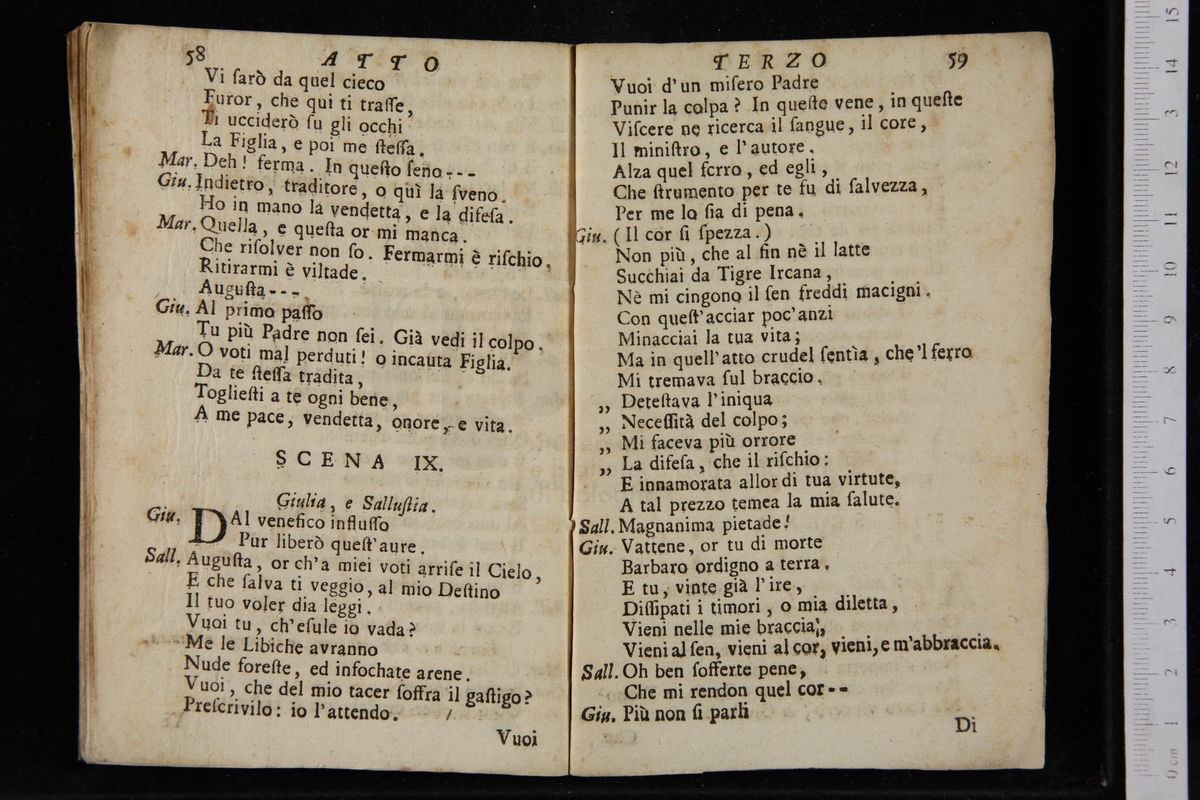 58
ATTO
Vi ſarò da quel cieco
Furor, che qui ti traſſe,
Ti ucciderò ſu gli occhi
La Figlia, e poi me ſteſſa.
Mar. Deh! ferma. In queſto ſeno---
Giu. Indietro, traditore, o quì la ſveno.
Ho in mano la vendetta, e la difeſa.
Mar. Quella, e queſta or mi manca.
Che riſolver non ſo. Fermarmi è riſchio,
Ritirarmi è viltade.
Auguſta---
Giu. Al primo paſſo
Tu più Padre non ſei. Già vedi il colpo.
Mar. O voti mal perduti! o incauta Figlia.
Da te ſteſſa tradita,
Toglieſti a te ogni bene,
A me pace, vendetta, onore, e vita.
SCENA IX.
Giulia, e Salluſtia.
Giu. DAl venefico influſſo
Pur liberò queſt'aure.
Sall. Auguſta, or ch'a miei voti arriſe il Cielo,
E che ſalva ti veggio, al mio Deſtino
Il tuo voler dia leggi.
Vuoi tu, ch'eſule io vada?
Me le Libiche avranno
Nude foreſte, ed infochate arene.
Vuoi, che del mio tacer ſoffra il gaſtigo?
Preſcrivilo: io l'attendo.
Vuoi
TERZO
59
Vuoi d'un miſero Padre
Punir la colpa? In queſte vene, in queſte
Viſcere ne ricerca il ſangue, il core,
Il miniſtro, e l'autore.
Alza quel ferro, ed egli,
Che ſtrumento per te fu di ſalvezza,
Per me lo ſia di pena.
Giu. (Il cor ſi ſpezza.)
Non più, che al fin nè il latte
Succhiai da Tigre Ircana,
Nè mi cingono il ſen freddi macigni.
Con queſt'acciar poc'anzi
Minacciai la tua vita;
Ma in quell'atto crudel ſentìa, che'l ferro
Mi tremava ſul braccio.
„ Deteſtava l'iniqua
„ Neceſſità del colpo;
„ Mi faceva più orrore
„ La difeſa, che il riſchio:
E innamorata allor di tua virtute,
A tal prezzo temea la mia ſalute.
Sall. Magnanima pietade!
Giu. Vattene, or tu di morte
Barbaro ordigno a terra.
E tu, vinte già l'ire,
Diſſipati i timori, o mia diletta,
Vieni nelle mie braccia;,
Vieni al ſen, vieni al cor, vieni, e m'abbraccia.
Sall. Oh ben ſofferte pene,
Che mi rendon quel cor--
Giu. Più non ſi parli
Di
0 cm 1 2 3 4 5 6 7 8 9 10 11 12 3 14 15